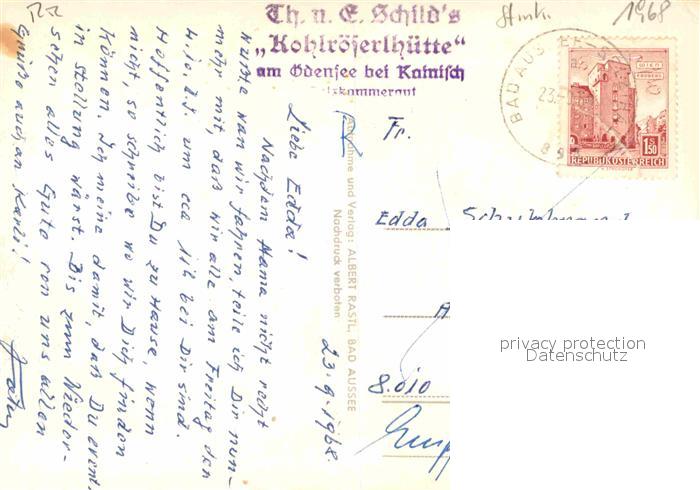 RR
Stmk.
1968
Th. u. E. Schild's
„Kohlröserlhütte"
am Ödensee bei Kainisch
BAD AUSSEE
23.
WIEN
1.50
REPUBLIK ÖSTERREICH
23.9.1968.
Liebe Edda!
Nachdem Mama nicht recht
wußte wan wir fahren, teile ich Dir nun-
mehr mit, daß wir alle am Freitag den
4.10. d.J. um cca 11h bei Dir sind.
Hoffentlich bist Du zu Hause, wenn
nicht, so schreibe wo wir Dich finden
können. Ich meine damit, daß Du event.
in Stellung wärst. Bis zum Wieder-
sehen alles Gute von uns allen
Grüße auch an Karli!
Aufnahme und Verlag: ALBERT RASTL, BAD AUSSEE
Nachdruck verboten
Fr.
Edda
8010
privacy protection
Datenschutz